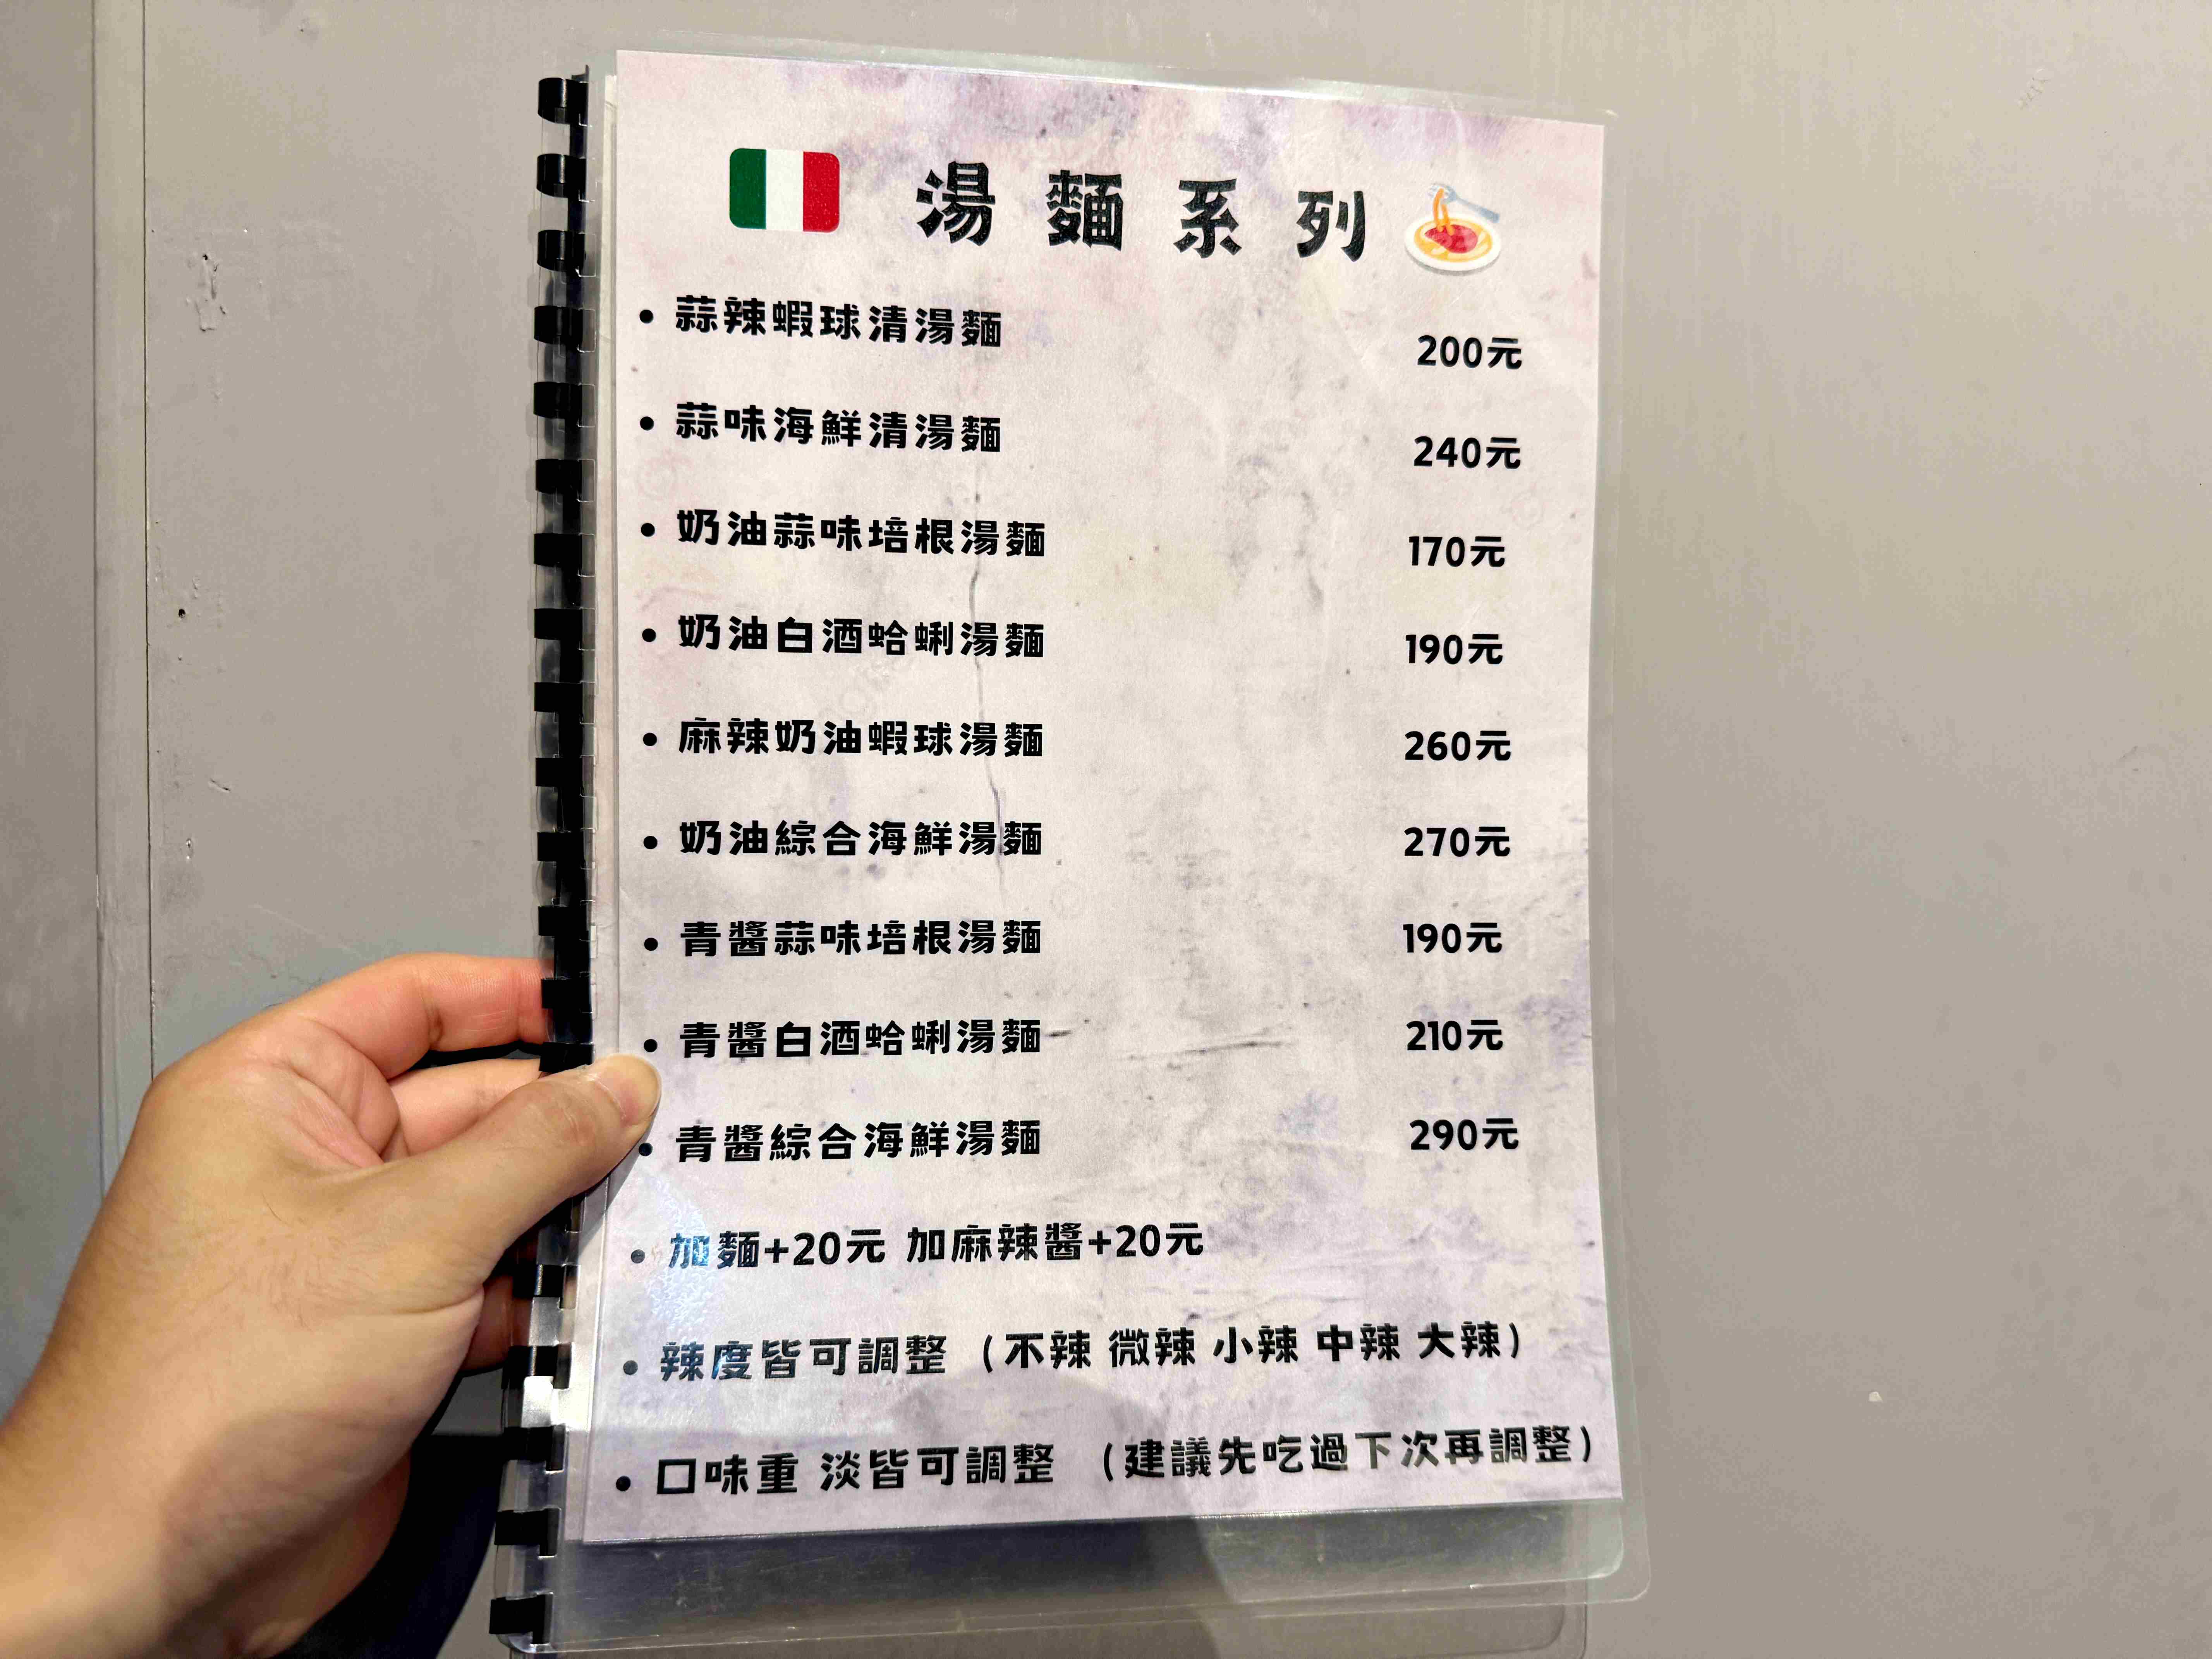 湯麵系列
蒜辣蝦球清湯麵 200元
蒜味海鮮清湯麵 240元
奶油蒜味培根湯麵 170元
奶油白酒蛤蜊湯麵 190元
麻辣奶油蝦球湯麵 260元
奶油綜合海鮮湯麵 270元
青醬蒜味培根湯麵 190元
青醬白酒蛤蜊湯麵 210元
青醬綜合海鮮湯麵 290元
加麵+20元 加麻辣醬+20元
辣度皆可調整 (不辣 微辣 小辣 中辣 大辣)
口味重 淡皆可調整 (建議先吃過下次再調整)